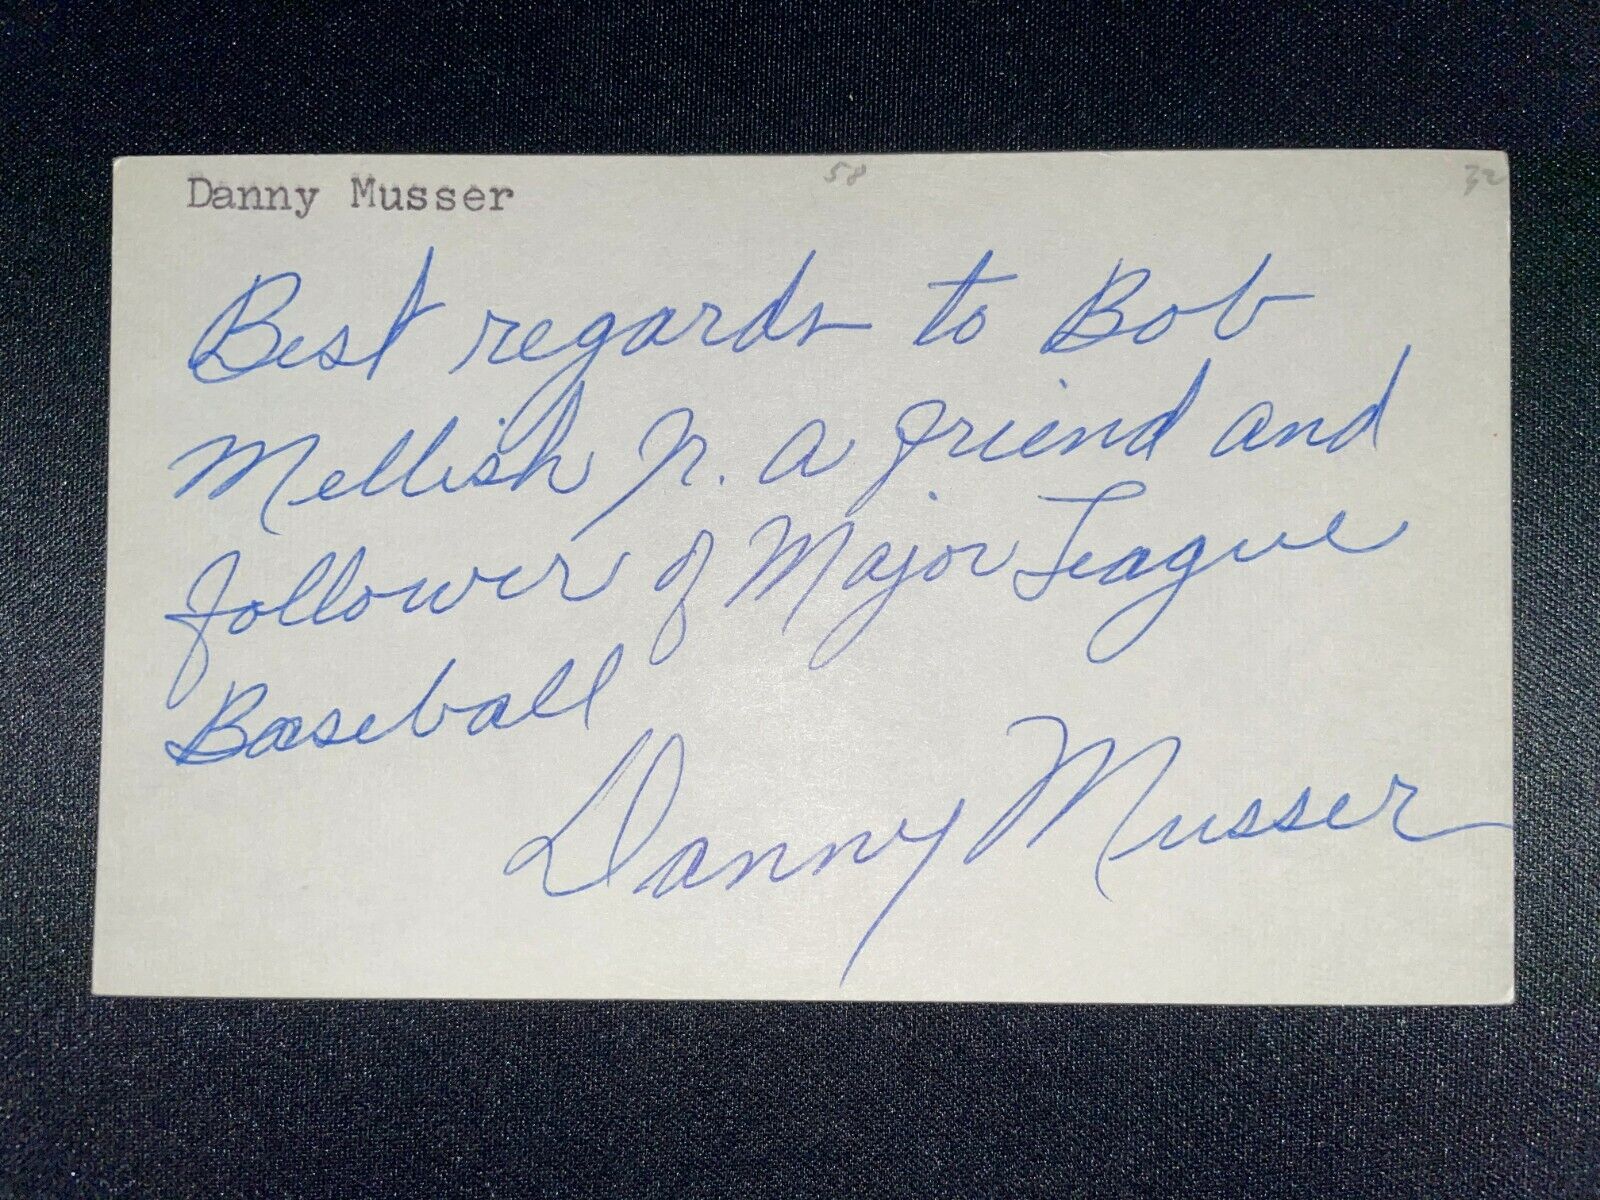 Danny Musser 58 32
Best regards to Bob
Mellish Jr. a friend and
follower of Major League
Baseball
Danny Musser